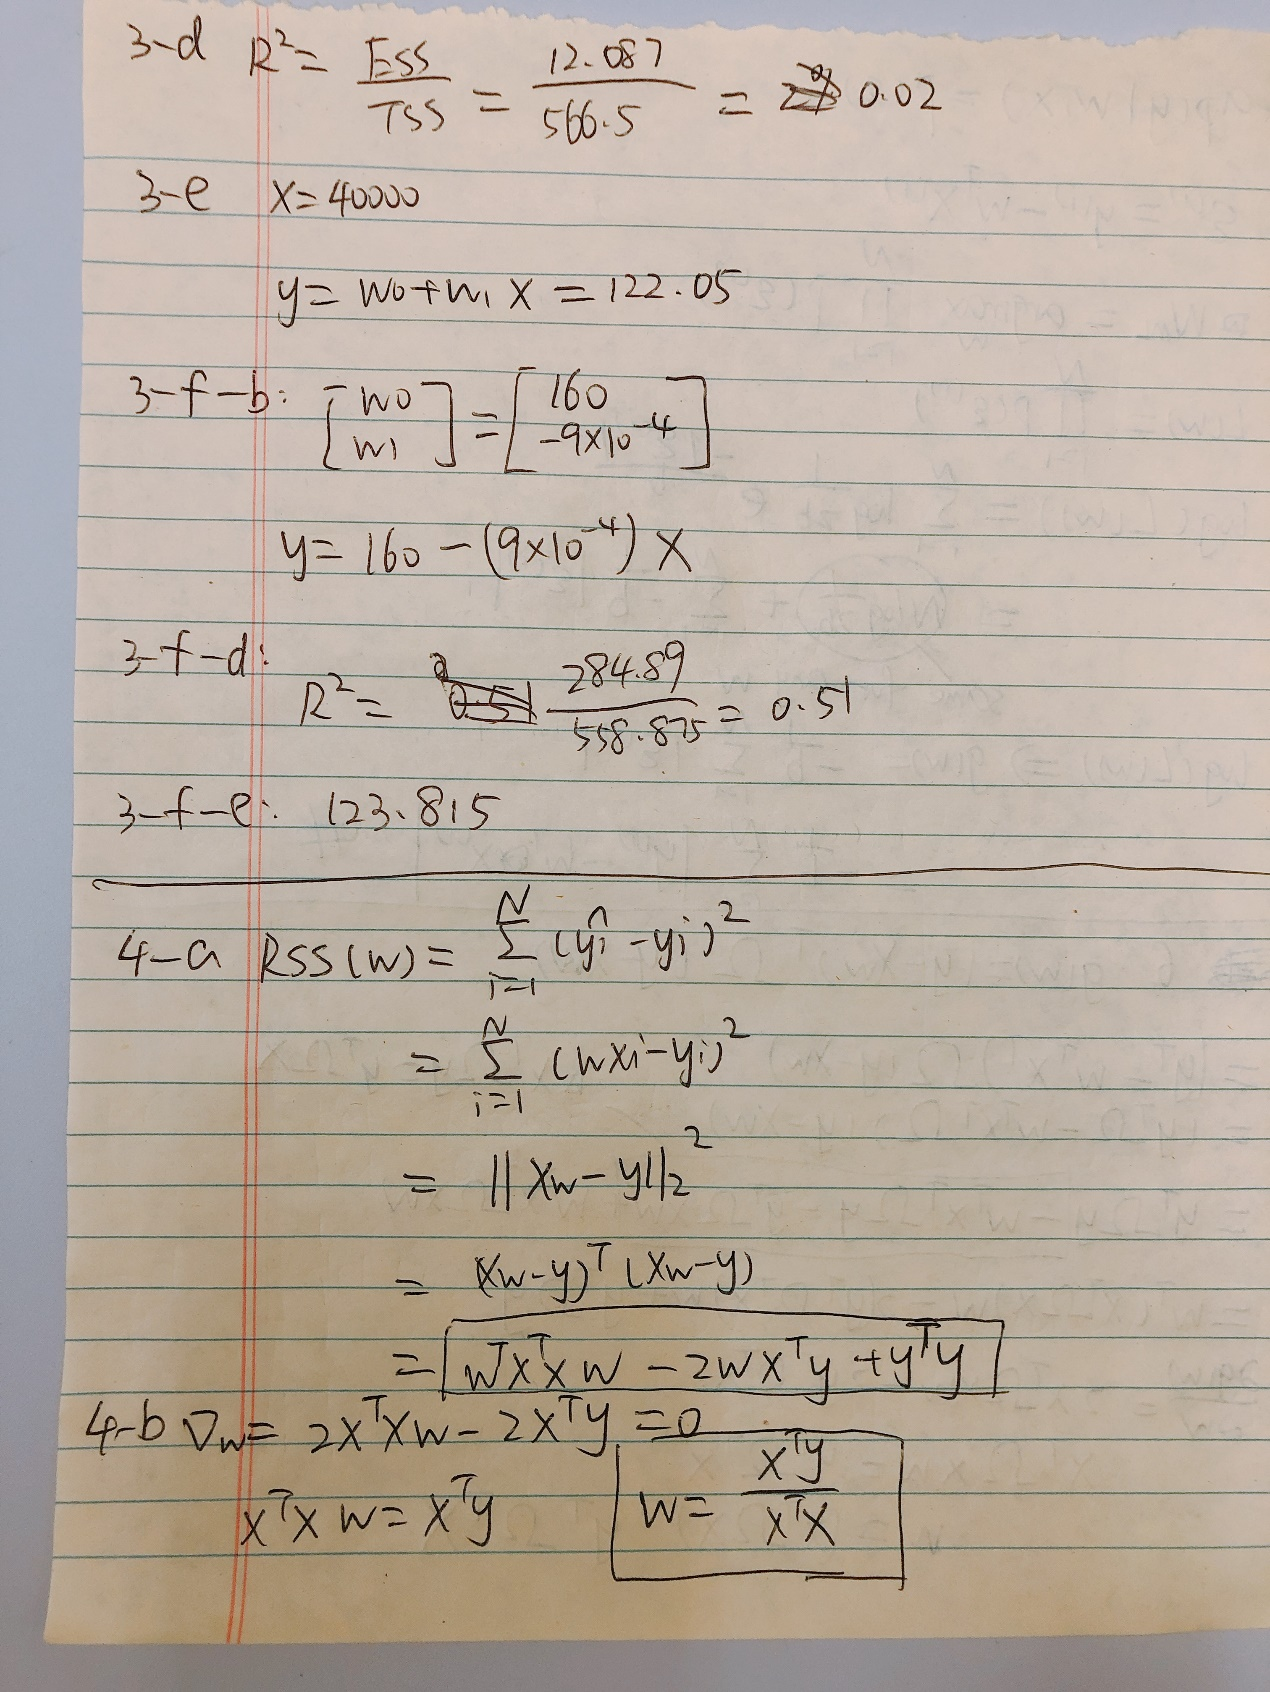 3-d R² = ESS/TSS = 12.087/566.5 = 0.02
3-e X = 40000
y = w0 + w1 X = 122.05
3-f-b: [w0 w1] = [160 -9×10⁻⁴]
y = 160 - (9×10⁻⁴) X
3-f-d:
R² = 284.89/558.875 = 0.51
3-f-e: 123.815
4-a RSS(w) = Σ_{i=1}^{N} (ŷi - yi)²
= Σ_{i=1}^{N} (wxi - yi)²
= ||Xw - y||₂²
= (Xw-y)ᵀ (Xw-y)
= wᵀxᵀxw - 2wxᵀy + yᵀy
4-b ∇w = 2xᵀXw - 2xᵀy = 0
xᵀx w = xᵀy w = xᵀy/xᵀx